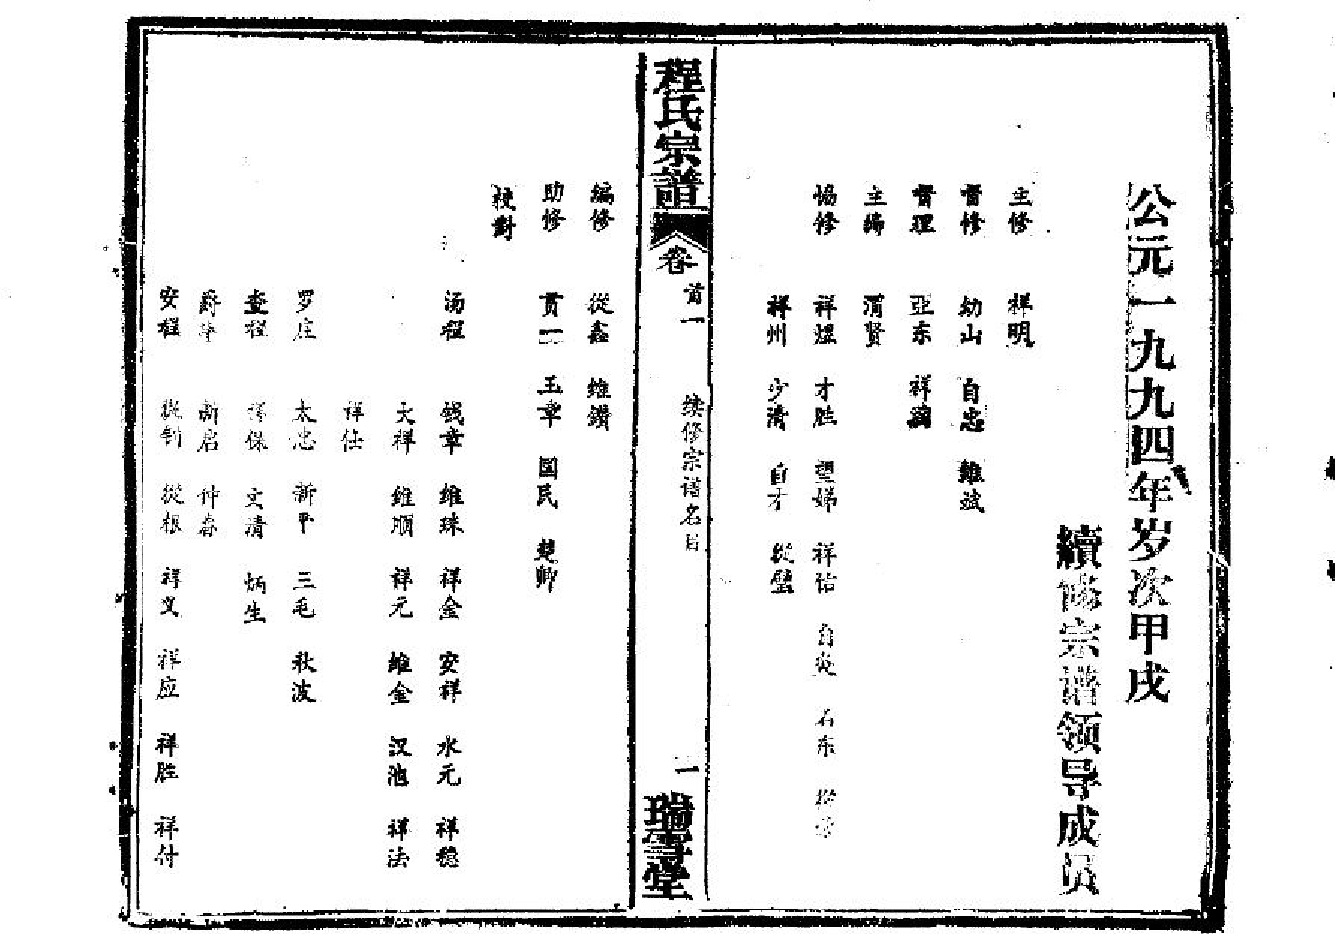 公元一九九四年岁次甲戌
續修宗谱领导成员
主修 祥明
督修 幼山 自忠 維斌
督理 亚东 祥
主编 渭贤
协修 祥煜 才胜 望娣 祥信 自炎 石东
祥州 少清 自才 從
程氏宗譜 卷首一 续修宗谱名目 一 瑞雪堂
编修 從鑫 维鑽
助修 贯一 玉章 国民 楚卿
校對
汤程 钱章 维珠 祥金 安祥 水元 祥稳
大祥 维顺 祥元 维金 汉池 祥法
祥仕
罗庄 太忠 新平 三毛 秋波
查程 祥保 文清 炳生
新启 仲春
安程 從钊 從根 祥义 祥应 祥胜 祥付